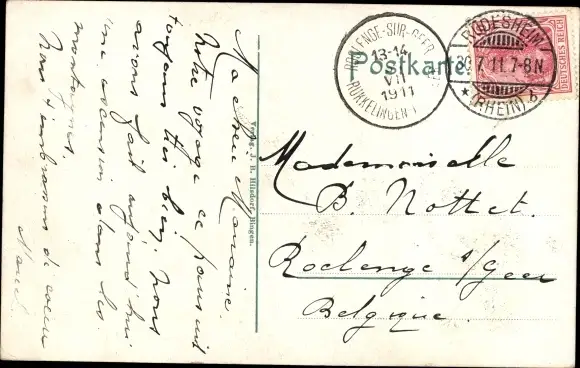 Ma chère Marraine.
Notre voyage se poursuit
toujours très bien. Nous
avons fait aujourd'hui
une ascension dans les
montagnes.
Nous t'embrassons de coeur
Marcel.
Verlag J. H. Hilsdorf, Bingen.
Postkarte
ROCLENGE-SUR-GEER
13-14
VII
1911
RUKKELINGEN
RÜDESHEIM
7.11.7-8N
* (RHEIN) b
DEUTSCHES REICH
Mademoiselle
B. Nottet.
Roclenge s/Geer
Belgique.